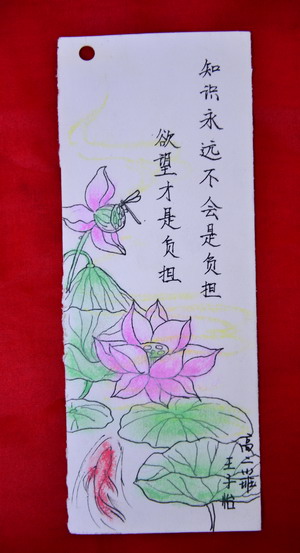 知识永远不会是负担
欲望才是负担
王子怡